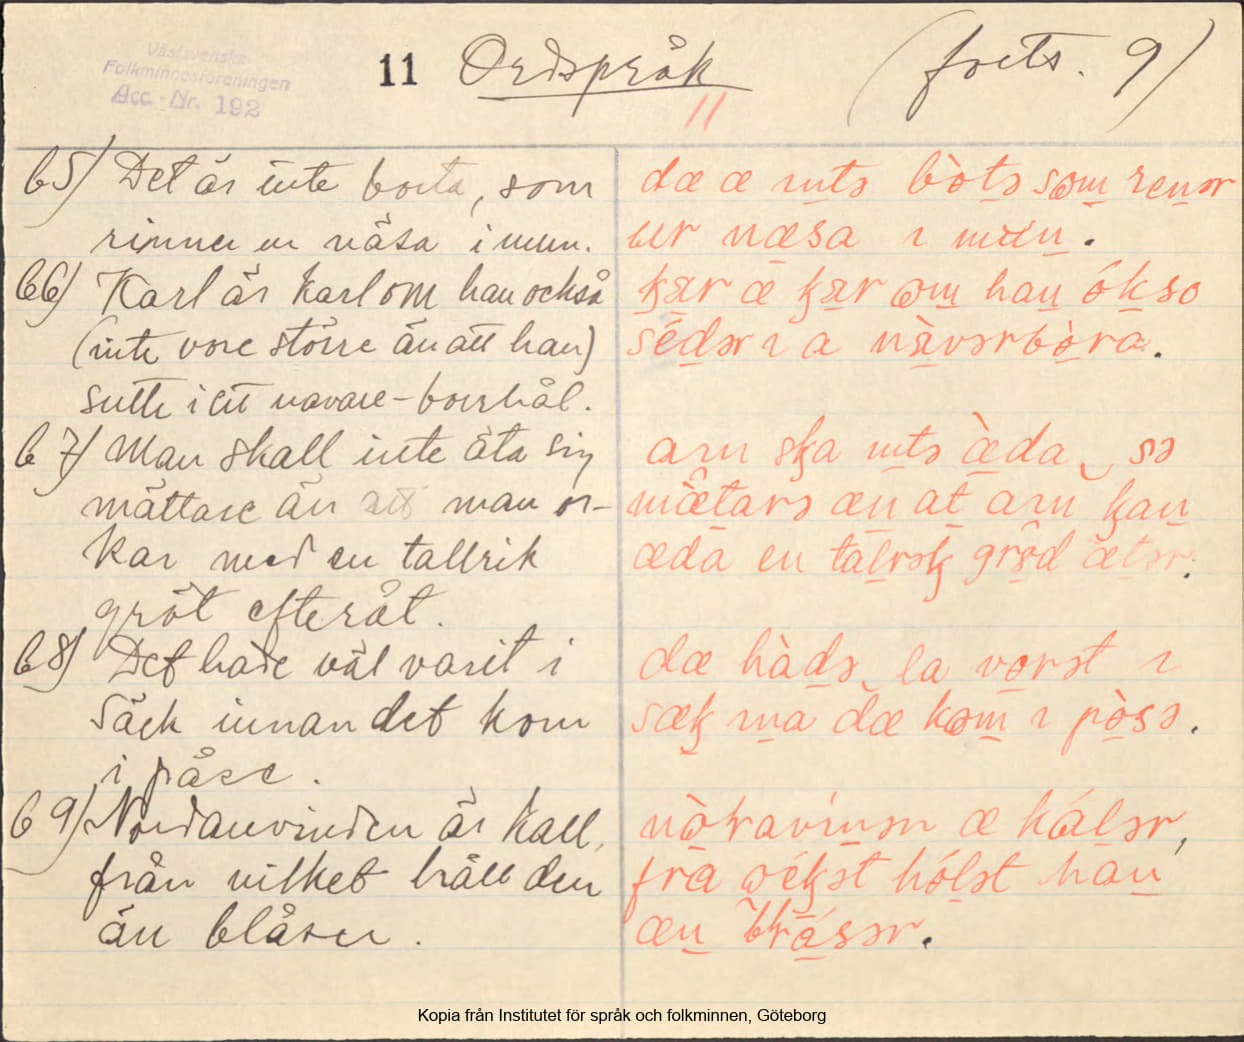 Västsvenska
Folkminnesföreningen
Acc.-Nr. 192
11 Ordspråk (forts. 9)
11
65) Det är inte borta, som
rinner ur näsa i mun.
66) Karl är karl om han också
(inte vore större än att han)
sutte i ett navare-borrhål.
67) Man skall inte äta sig
mättare än att man or-
kar med en tallrik
gröt efteråt.
68) Det hade väl varit i
säck innan det kom
i påse.
69) Nordanvinden är kall,
från vilket håll den
än blåser.
dæ æ ɩntə bòtə søm renər
ur næsa ɩ mun.
kar æ kar øm han ókso
sédər ɩ a nàvərbòra.
am ska ɩntə æ̀da sə
mætarə æn at am kan
æda en talrək grød ætər.
dæ hàdə la vørət ɩ
sæk ɩna dæ køm ɩ pòsə.
nòravínən æ kálər,
fra øékət hólət han
æn blósər.
Kopia från Institutet för språk och folkminnen, Göteborg